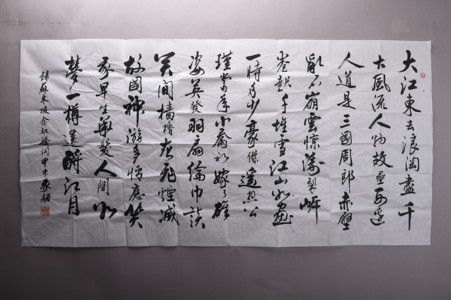 大江東去浪淘盡千
古風流人物故壘西邊
人道是三國周郎赤壁
亂石崩雲驚濤裂岸
卷起千堆雪江山如畫
一時多少豪傑遙想公
瑾當年小喬初嫁雄
姿英發羽扇綸巾談
笑間檣櫓灰飛煙滅
故國神遊多情應笑
我早生華髮人間如
夢一樽還酹江月
錄蘇東坡念奴嬌